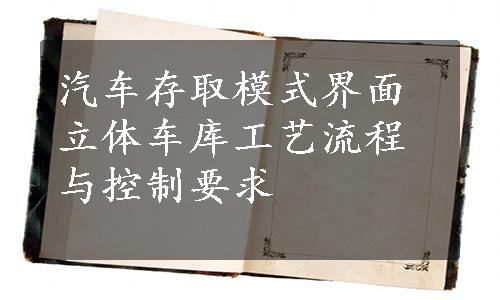 汽车存取模式界面
立体车库工艺流程
与控制要求